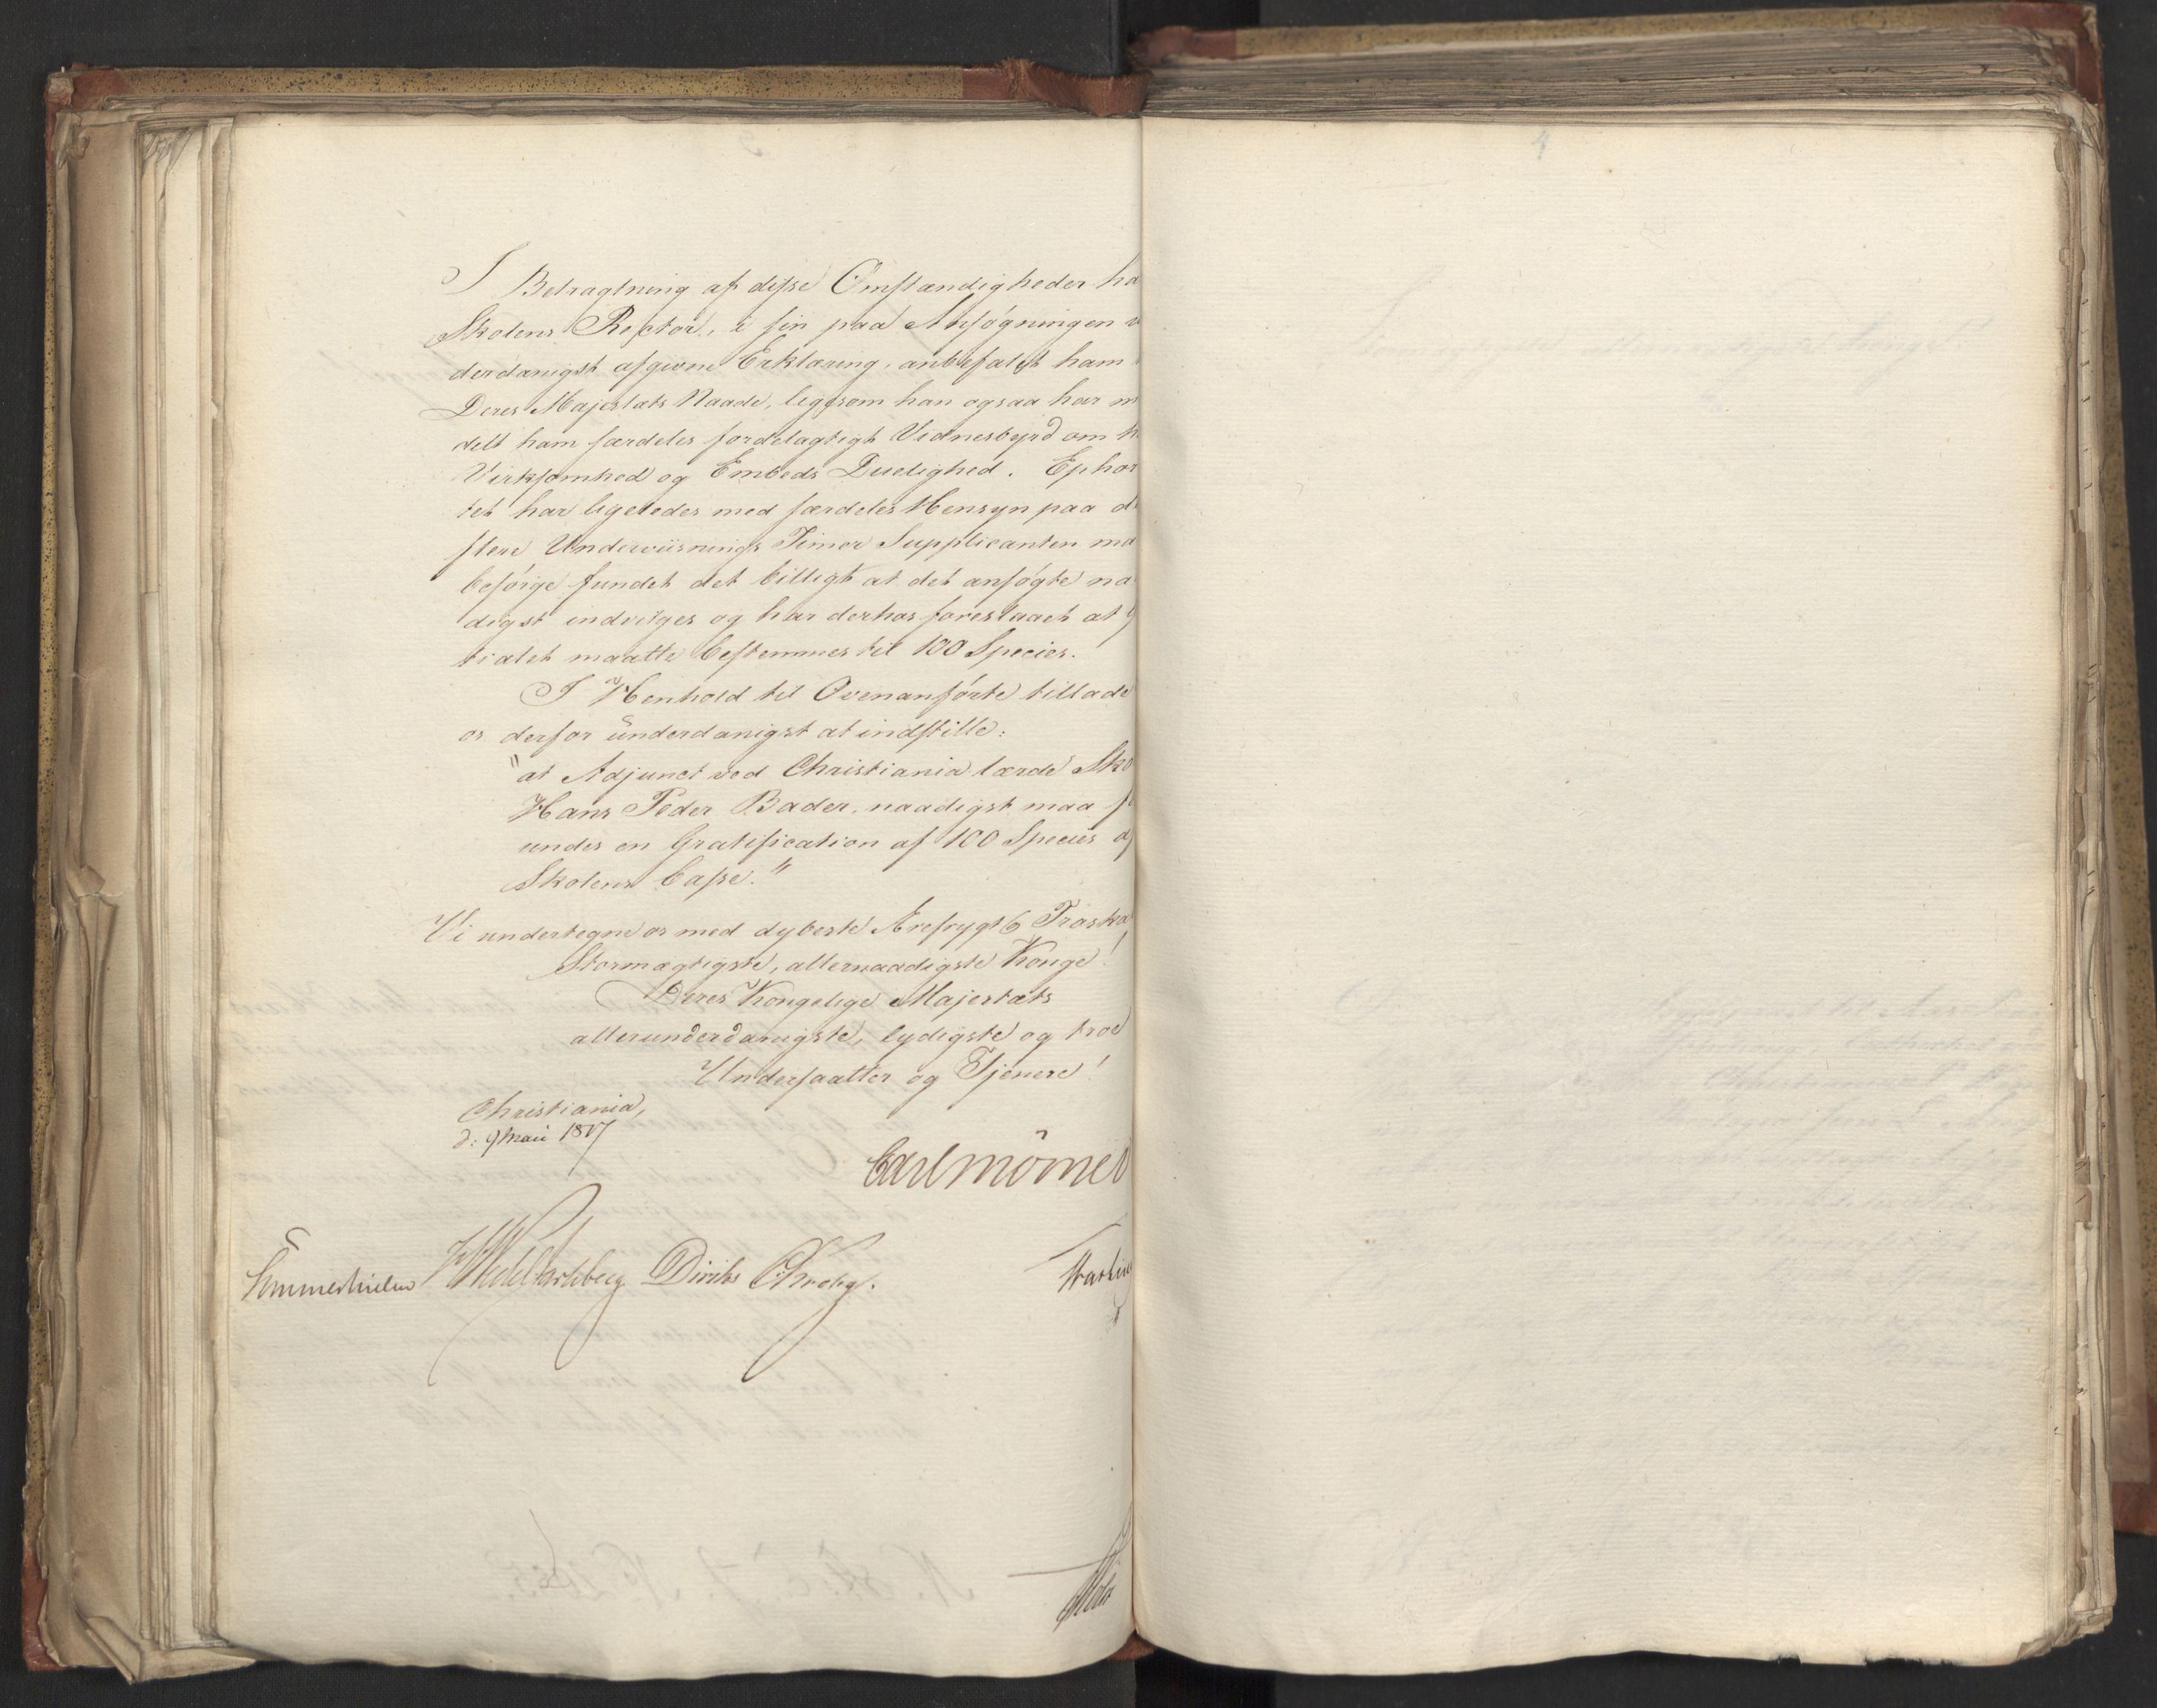 I Betragtning af disse Omstændigheder ha
Skolens Rector, i sin paa Ansøgningen u
derdanigst afgivne Erklæring, anbefalet ham
Deres Majestæts Naade, ligesom han ogsaa har m
delt ham særdeles fordelagtigt Vidnesbyrd om h
Virksomhed og Embeds Duelighed. Ephor
tet har ligeledes med særdeles Hensyn paa d
flere Underviisnings Timer Supplicanten maa
besørge fundet det billigt at det ansøgte naa
digst indvilges og har derhos foreslaaet at G
tialet maatte bestemmes til 100 Species.
I Henhold til Ovenanførte tillade
os derfor underdanigst at indstille:
"at Adjunct ved Christiania lærde Sko
Hans Peder Bader, naadigst maa f
undes en Gratification af 100 Species af
Skolens Casse."
Vi undertegne os med dybeste Ærefrygt & Troska
Stormægtigste, allernaadigste Konge!
Deres Kongelige Majestæts
allerunderdanigste, lydigste og troe
Undersaatter og Tjenere!
Christiania,
d: 9 Maii 1817
Carl Mörner
Sommerhielm HWedelJarlsberg Diriks CKrohg.
4